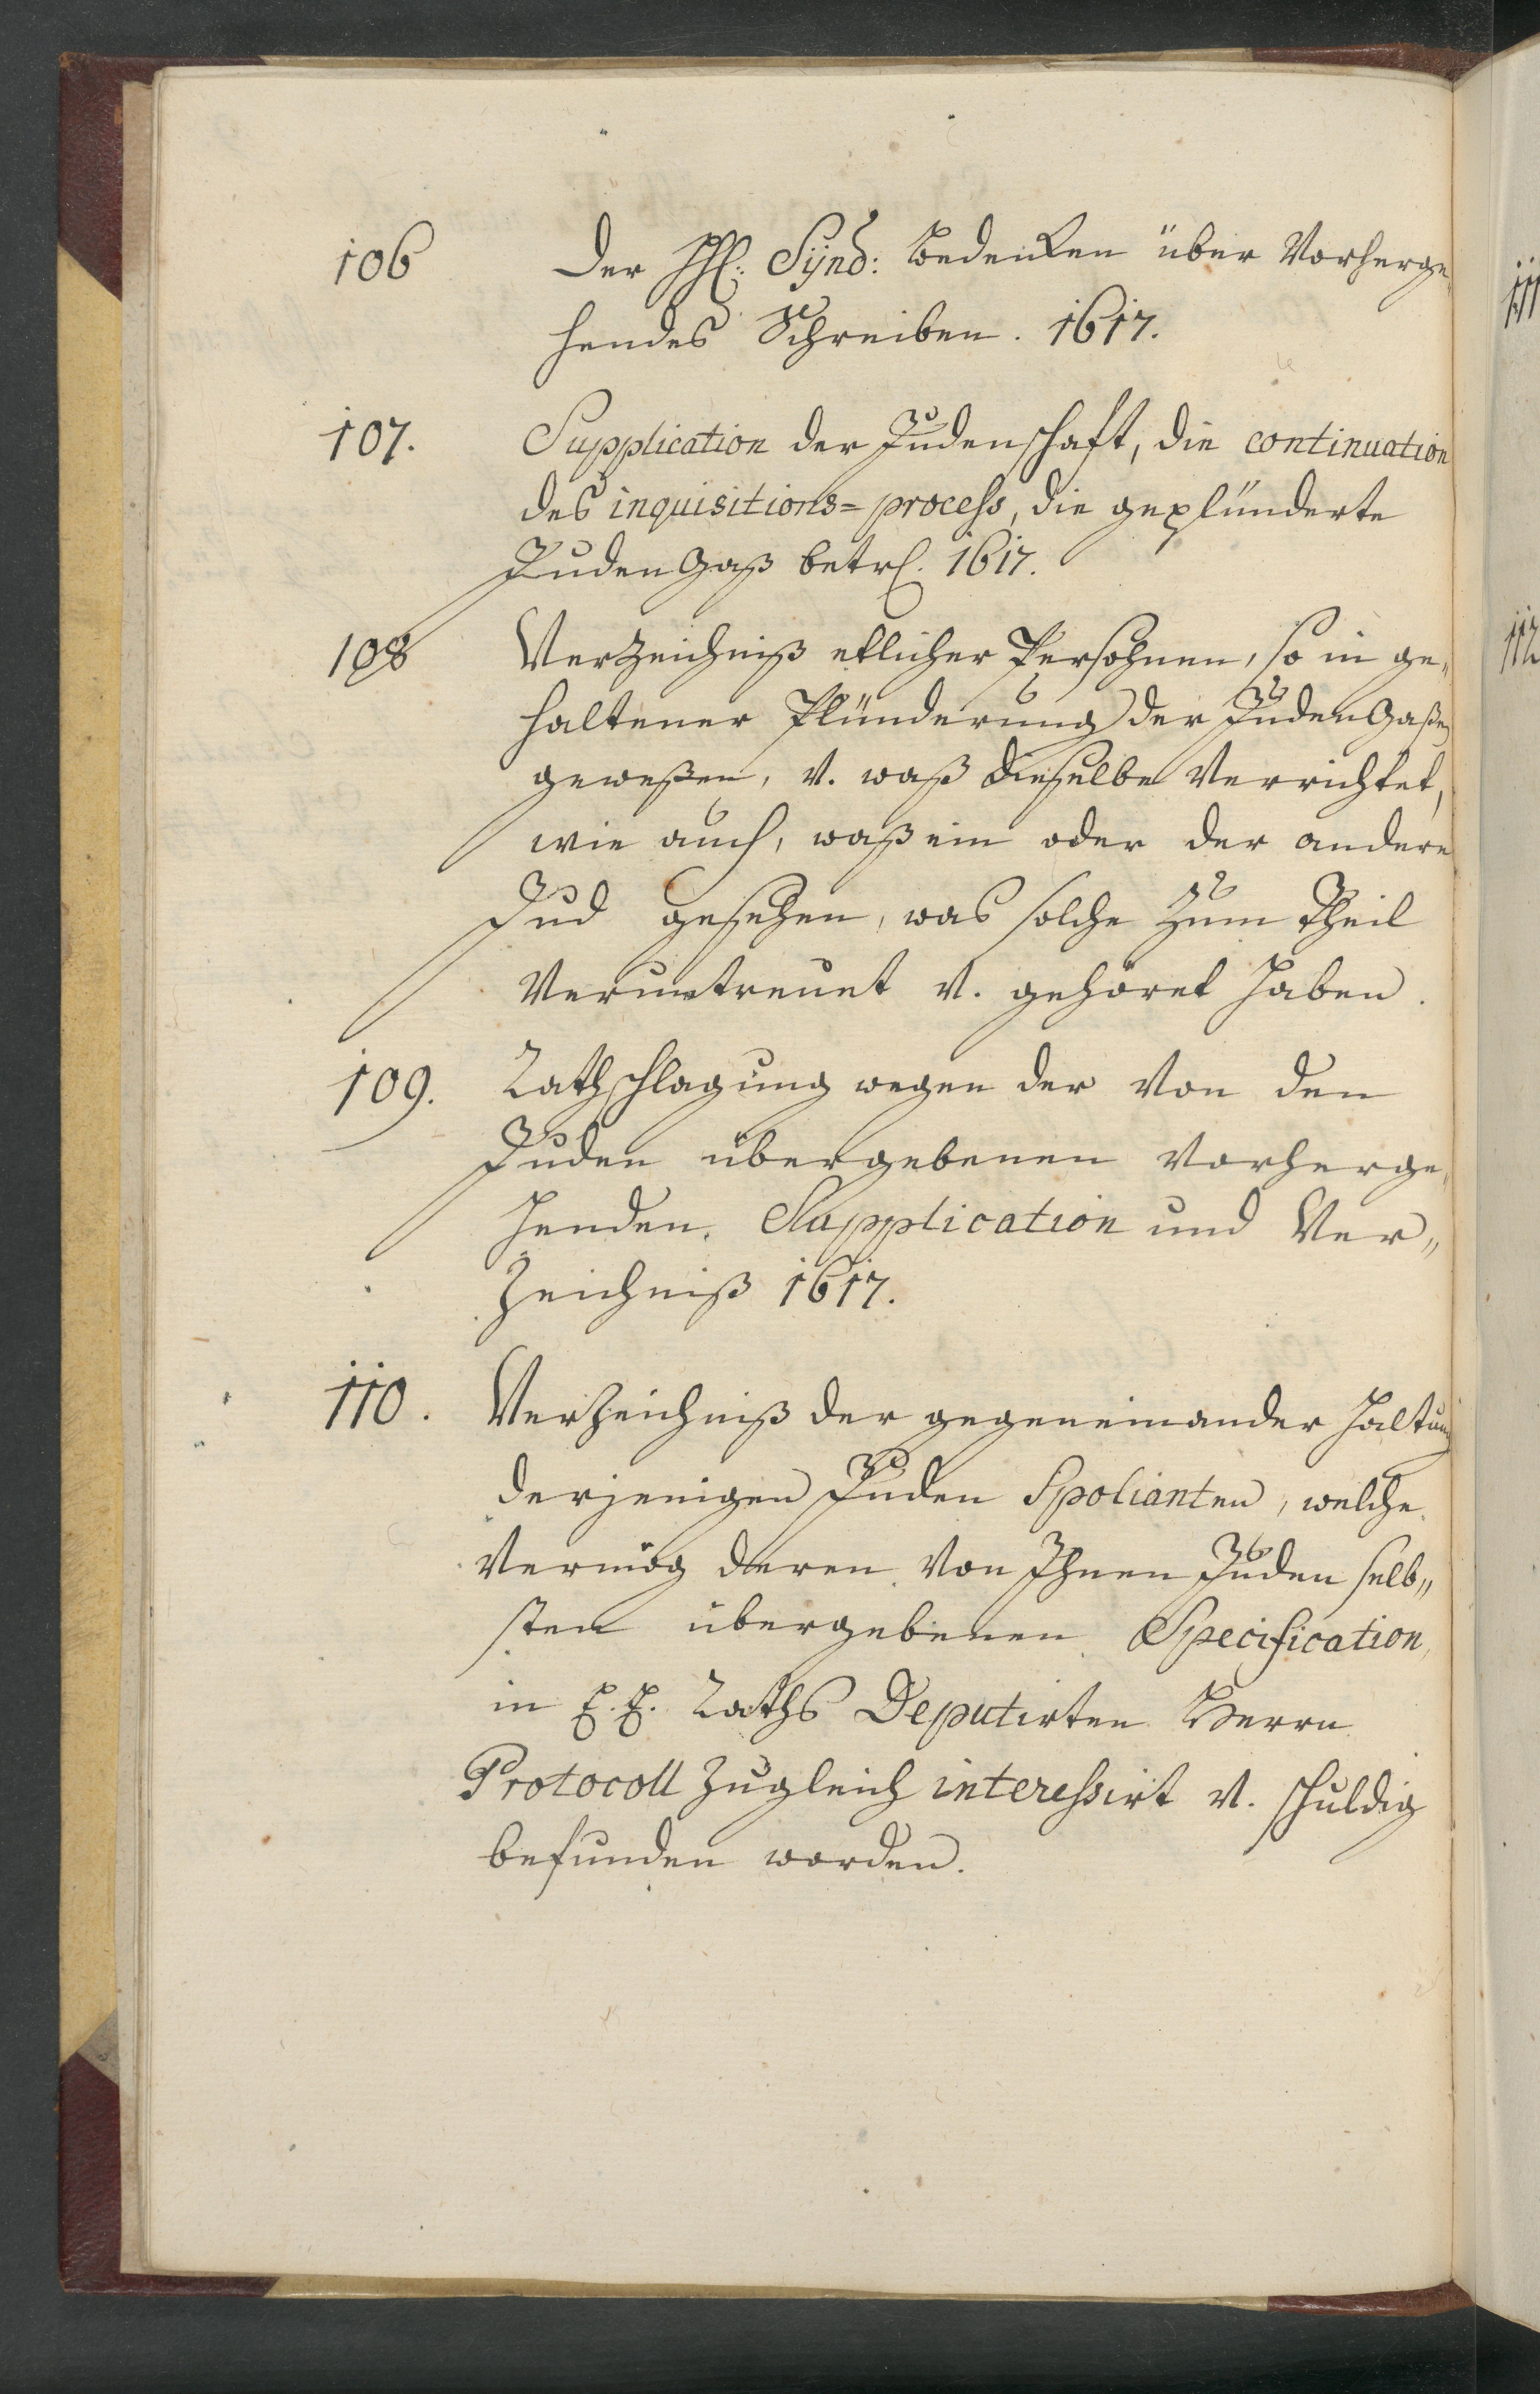 106 Der HH: Sÿnd: Bedencken über Vorherge¬
hendes Schreiben. 1617.
107. Supplication der Judenschaft, die continuation
des inquisitions=process, die geplünderte
Juden Gaß betr. 1617.
108 Verzeichniß etlicher Persohnen, so in ge„
haltener Plünderung der Juden Gaßen
geweßen, v. waß dieselbe Verrichtet,
wie auch, waß ein oder der andere
Jud gesehen, was solche zum Theil
Veruntreuet v. gehöret haben.
109. Rathschlagung wegen der Von den
Juden übergebenen vorherge„
henden Supplication und Ver„
zeichniß 1617.
110. Verzeichniß der gegeneinander Haltung
derjenigen Juden Spolianten, welche
Vermög deren Von Ihnen Juden selb„
sten übergebenen Specification
in E. E. Raths Deputirten Herrn
Protocoll zugleich interessirt v. schuldig
befunden worden.
111
112